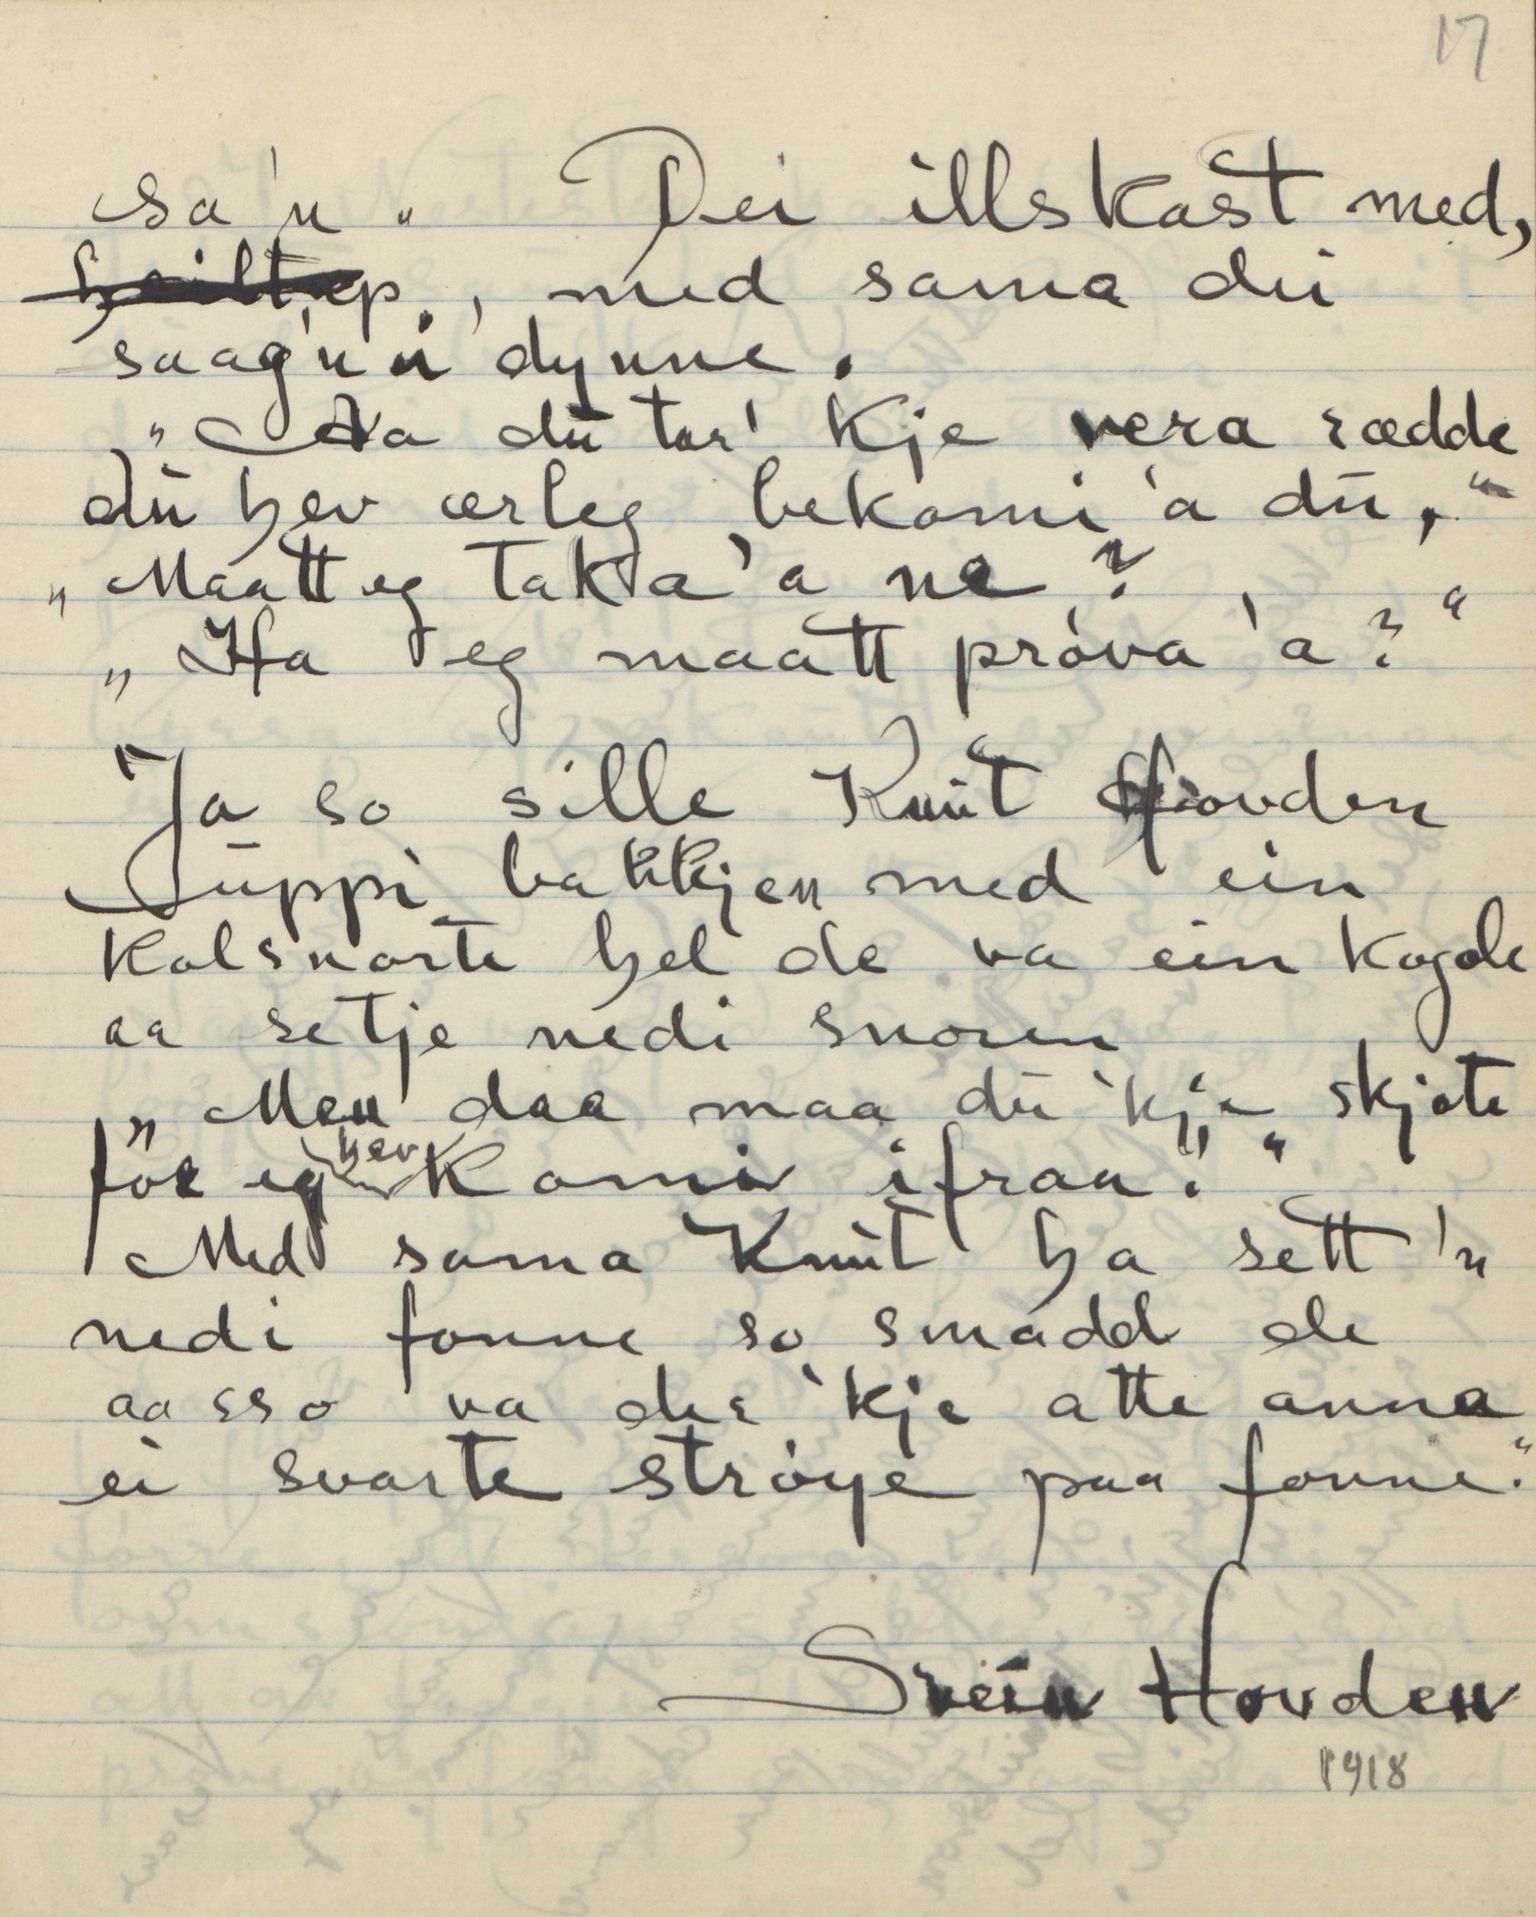 17
sa'n". Dei illskast med,
, med sama du
saag'n i dynne.
"Na du tar' kje vera rædde
du hev ærleg bekomi 'a du,"
"Maatt eg taka 'a ne?
"Ha eg maatt prova 'a?"
"Ja so sille Knut Hovden
uppi bakkjen med ein
kolsnarte hel de va ein kogde
aa setje nedi snoren
"Men daa maa du 'kje skjote
før eg hev komi ifraa!"
Med sama Knut ha sett 'n
nedi fonne so smadd de
aa sso va der 'kje atte anna
ei svarte strøye paa fonne."
Svein Hovden
1918